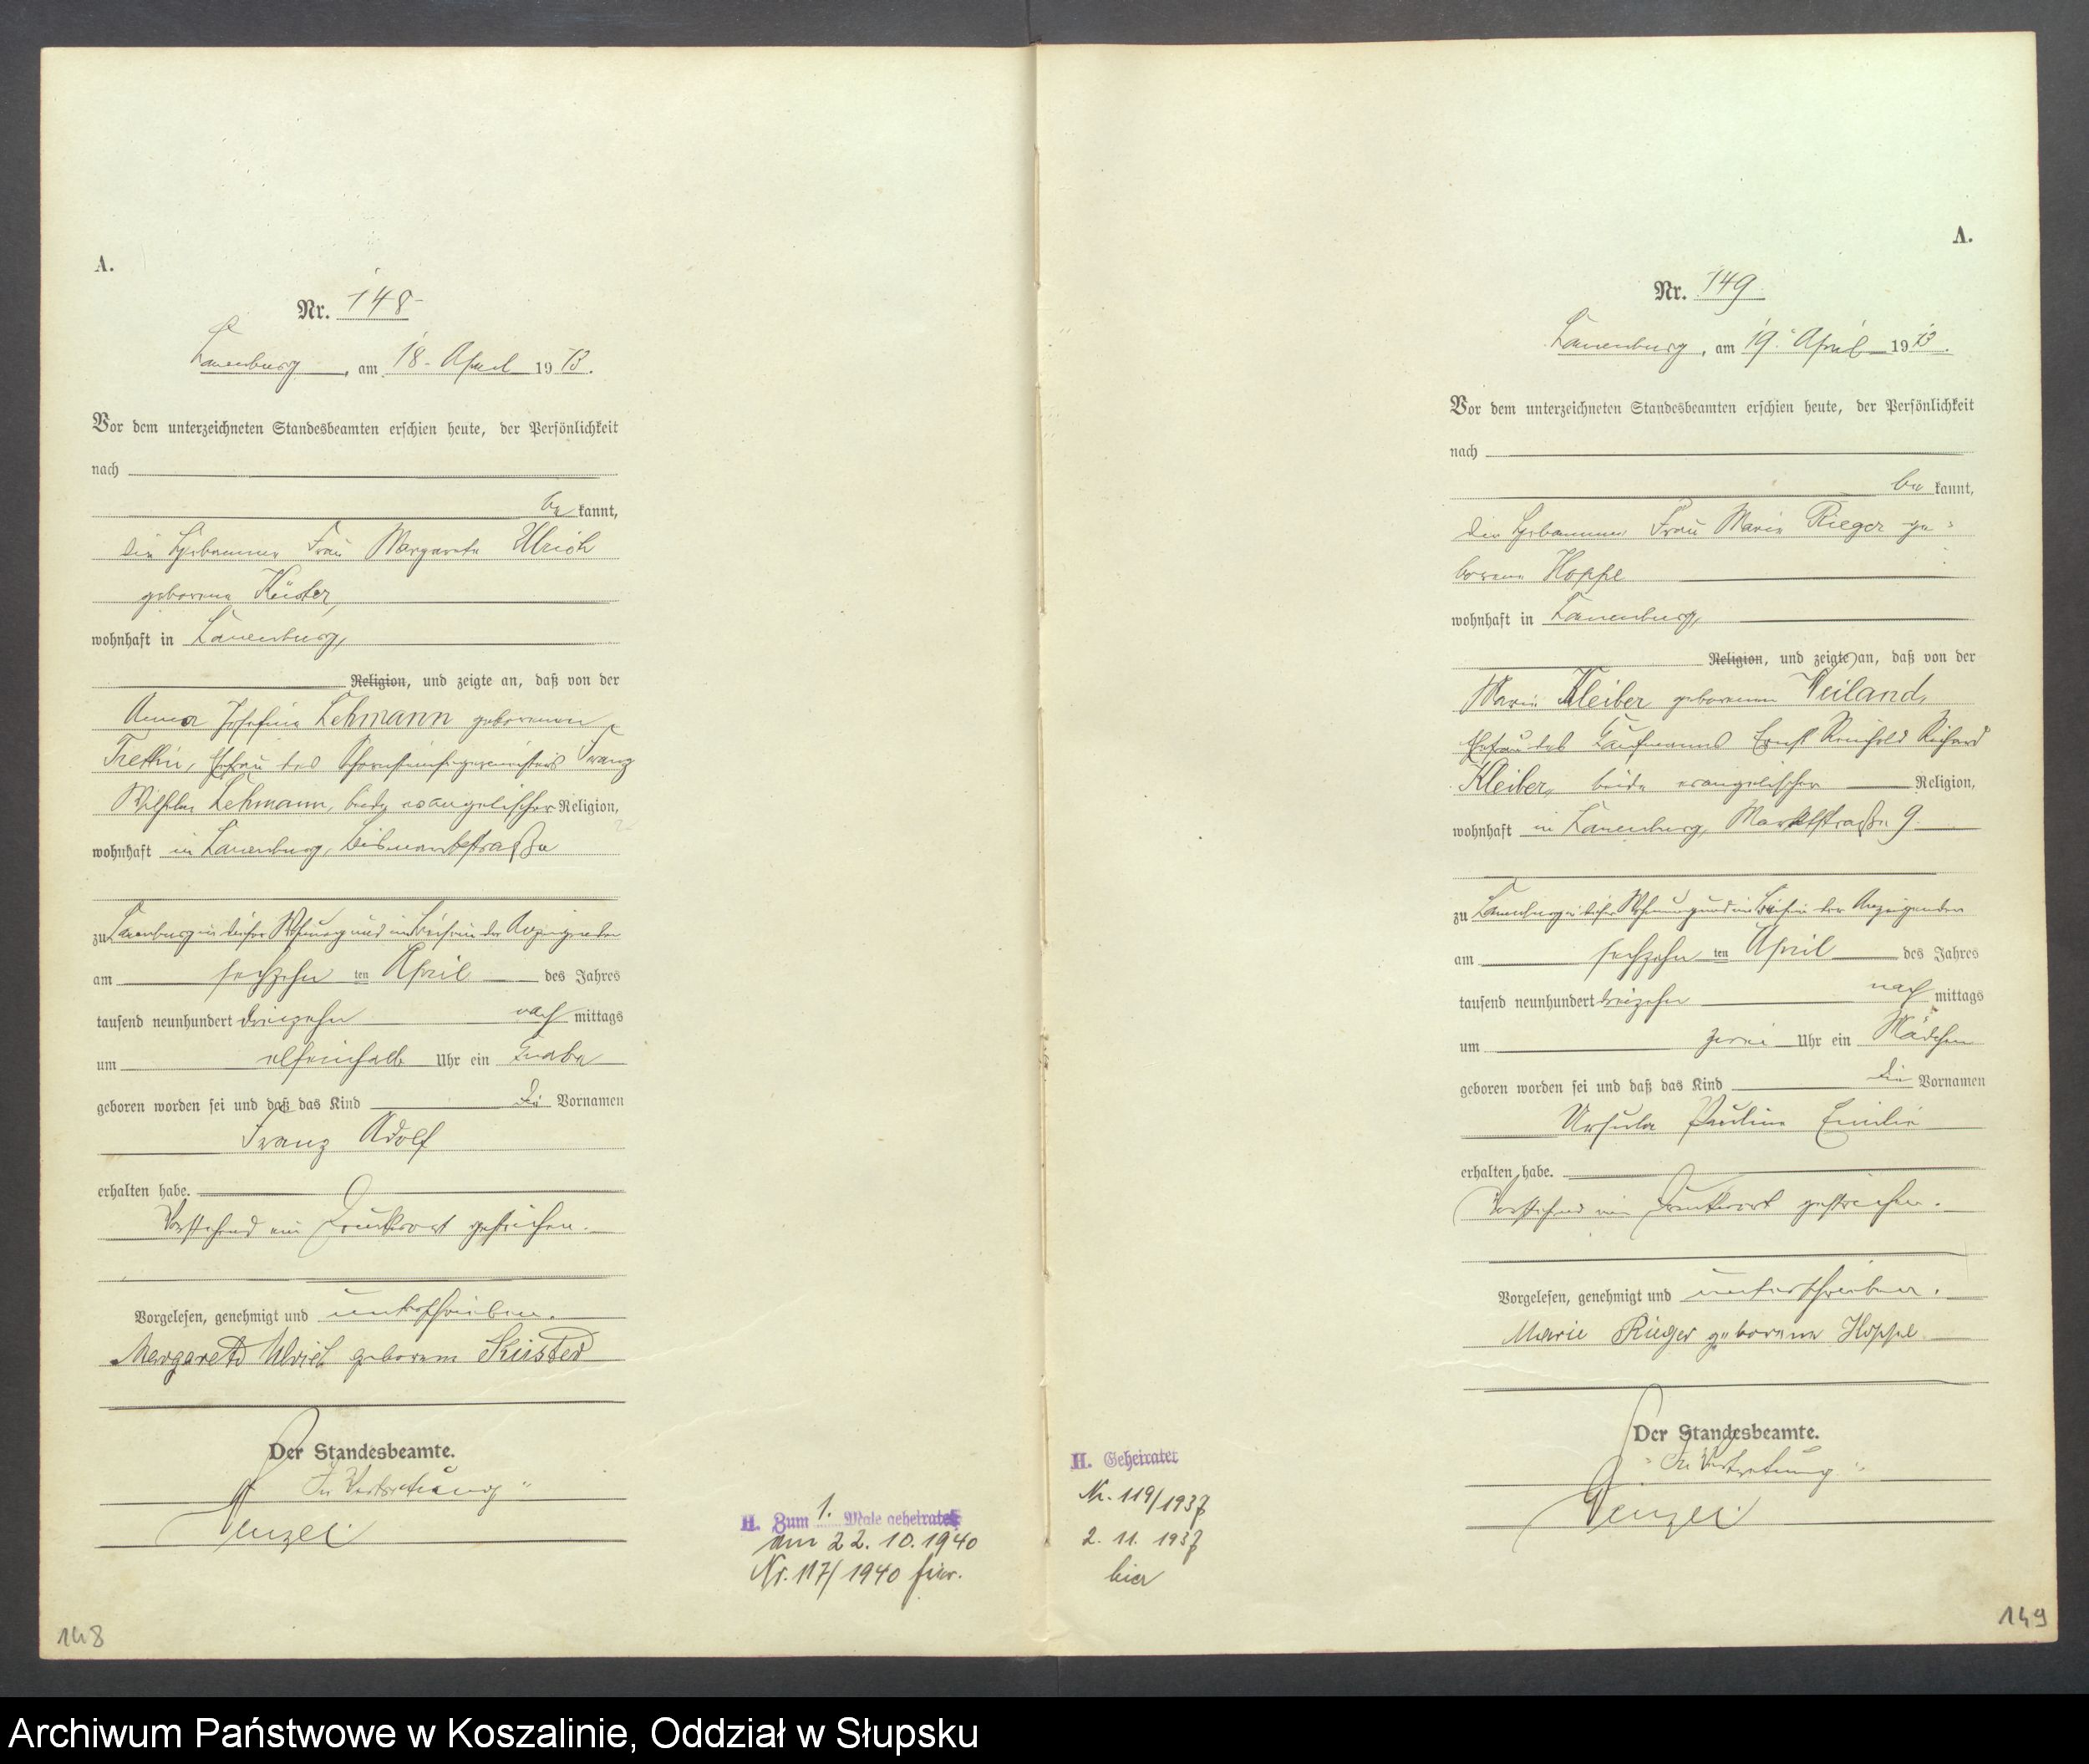 A.
Nr. 148
Lauenburg, am 18. April 1913.
Vor dem unterzeichneten Standesbeamten erschien heute, der Persönlichkeit
nach
be kannt,
die Hebamme Frau Margarete Ulrich
geborene Küster,
wohnhaft in Lauenburg,
Religion, und zeigte an, daß von der
Anna Josefine Lehmann geborenen
Trettin, Ehefrau des Schornsteinfegermeisters Franz
Wilhelm Lehmann, beide evangelischer Religion,
wohnhaft in Lauenburg, Bismarckstraße
zu Lauenburg in dieser Wohnung und im Beisein der Anzeigenden
am sechzehn ten April des Jahres
tausend neunhundert dreizehn nach mittags
um elfeinhalb Uhr ein Knabe
geboren worden sei und daß das Kind die Vornamen
Franz Adolf
erhalten habe.
Vorstehend ein Druckwort gestrichen.
Vorgelesen, genehmigt und unterschrieben.
Margarete Ulrich geborene Küster
Der Standesbeamte.
In Vertretung
Wenzel
H. Zum 1. Male geheiratet
am 22. 10. 1940
Nr. 117/1940 hier.
148
A.
Nr. 149
Lauenburg, am 19. April 1913.
Vor dem unterzeichneten Standesbeamten erschien heute, der Persönlichkeit
nach
be kannt,
die Hebamme Frau Marie Rieger ge=
borene Hoppe
wohnhaft in Lauenburg,
Religion, und zeigte an, daß von der
Marie Kleiber geborenen Weiland,
Ehefrau des Kaufmanns Ernst Reinhold Richard
Kleiber, beide evangelischer Religion,
wohnhaft in Lauenburg, Marktstraße 9.
zu Lauenburg in dieser Wohnung und im Beisein der Anzeigenden
am sechzehn ten April des Jahres
tausend neunhundert dreizehn nach mittags
um zwei Uhr ein Mädchen
geboren worden sei und daß das Kind die Vornamen
Ursula Pauline Emilie
erhalten habe.
Vorstehend ein Druckwort gestrichen.
Vorgelesen, genehmigt und unterschrieben.
Marie Rieger geborene Hoppe
Der Standesbeamte.
In Vertretung
Wenzel
H. Geheiratet
Nr. 119/1937
2. 11. 1937
hier
149
Archiwum Państwowe w Koszalinie, Oddział w Słupsku